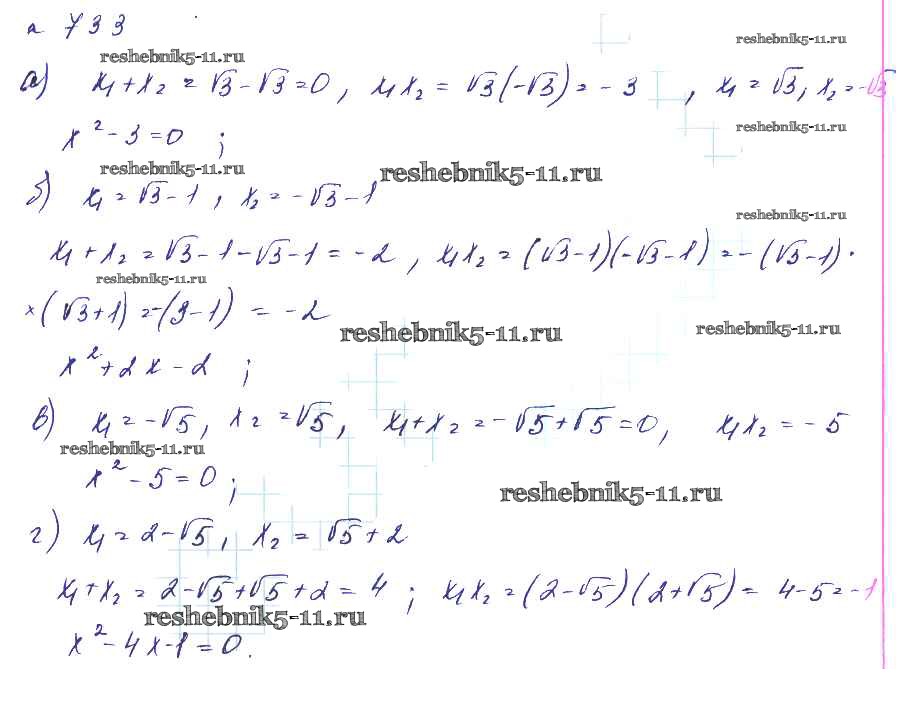 № 733
reshebnik5-11.ru
reshebnik5-11.ru
а) x₁+x₂ = √3-√3=0, x₁x₂ = √3(-√3) = -3, x₁ = √3; x₂ = -√3
x²-3=0;
reshebnik5-11.ru
reshebnik5-11.ru
reshebnik5-11.ru
б) x₁ = √3-1, x₂ = -√3-1
reshebnik5-11.ru
x₁+x₂ = √3-1-√3-1 = -2, x₁x₂ = (√3-1)(-√3-1) = -(√3-1)·
reshebnik5-11.ru
×(√3+1) = -(3-1) = -2
reshebnik5-11.ru
reshebnik5-11.ru
x²+2x-2;
в) x₁ = -√5, x₂ = √5, x₁+x₂ = -√5+√5=0, x₁x₂ = -5
reshebnik5-11.ru
x²-5=0;
reshebnik5-11.ru
г) x₁ = 2-√5, x₂ = √5+2
x₁+x₂ = 2-√5+√5+2 = 4; x₁x₂ = (2-√5)(2+√5) = 4-5 = -1
reshebnik5-11.ru
x²-4x-1=0.